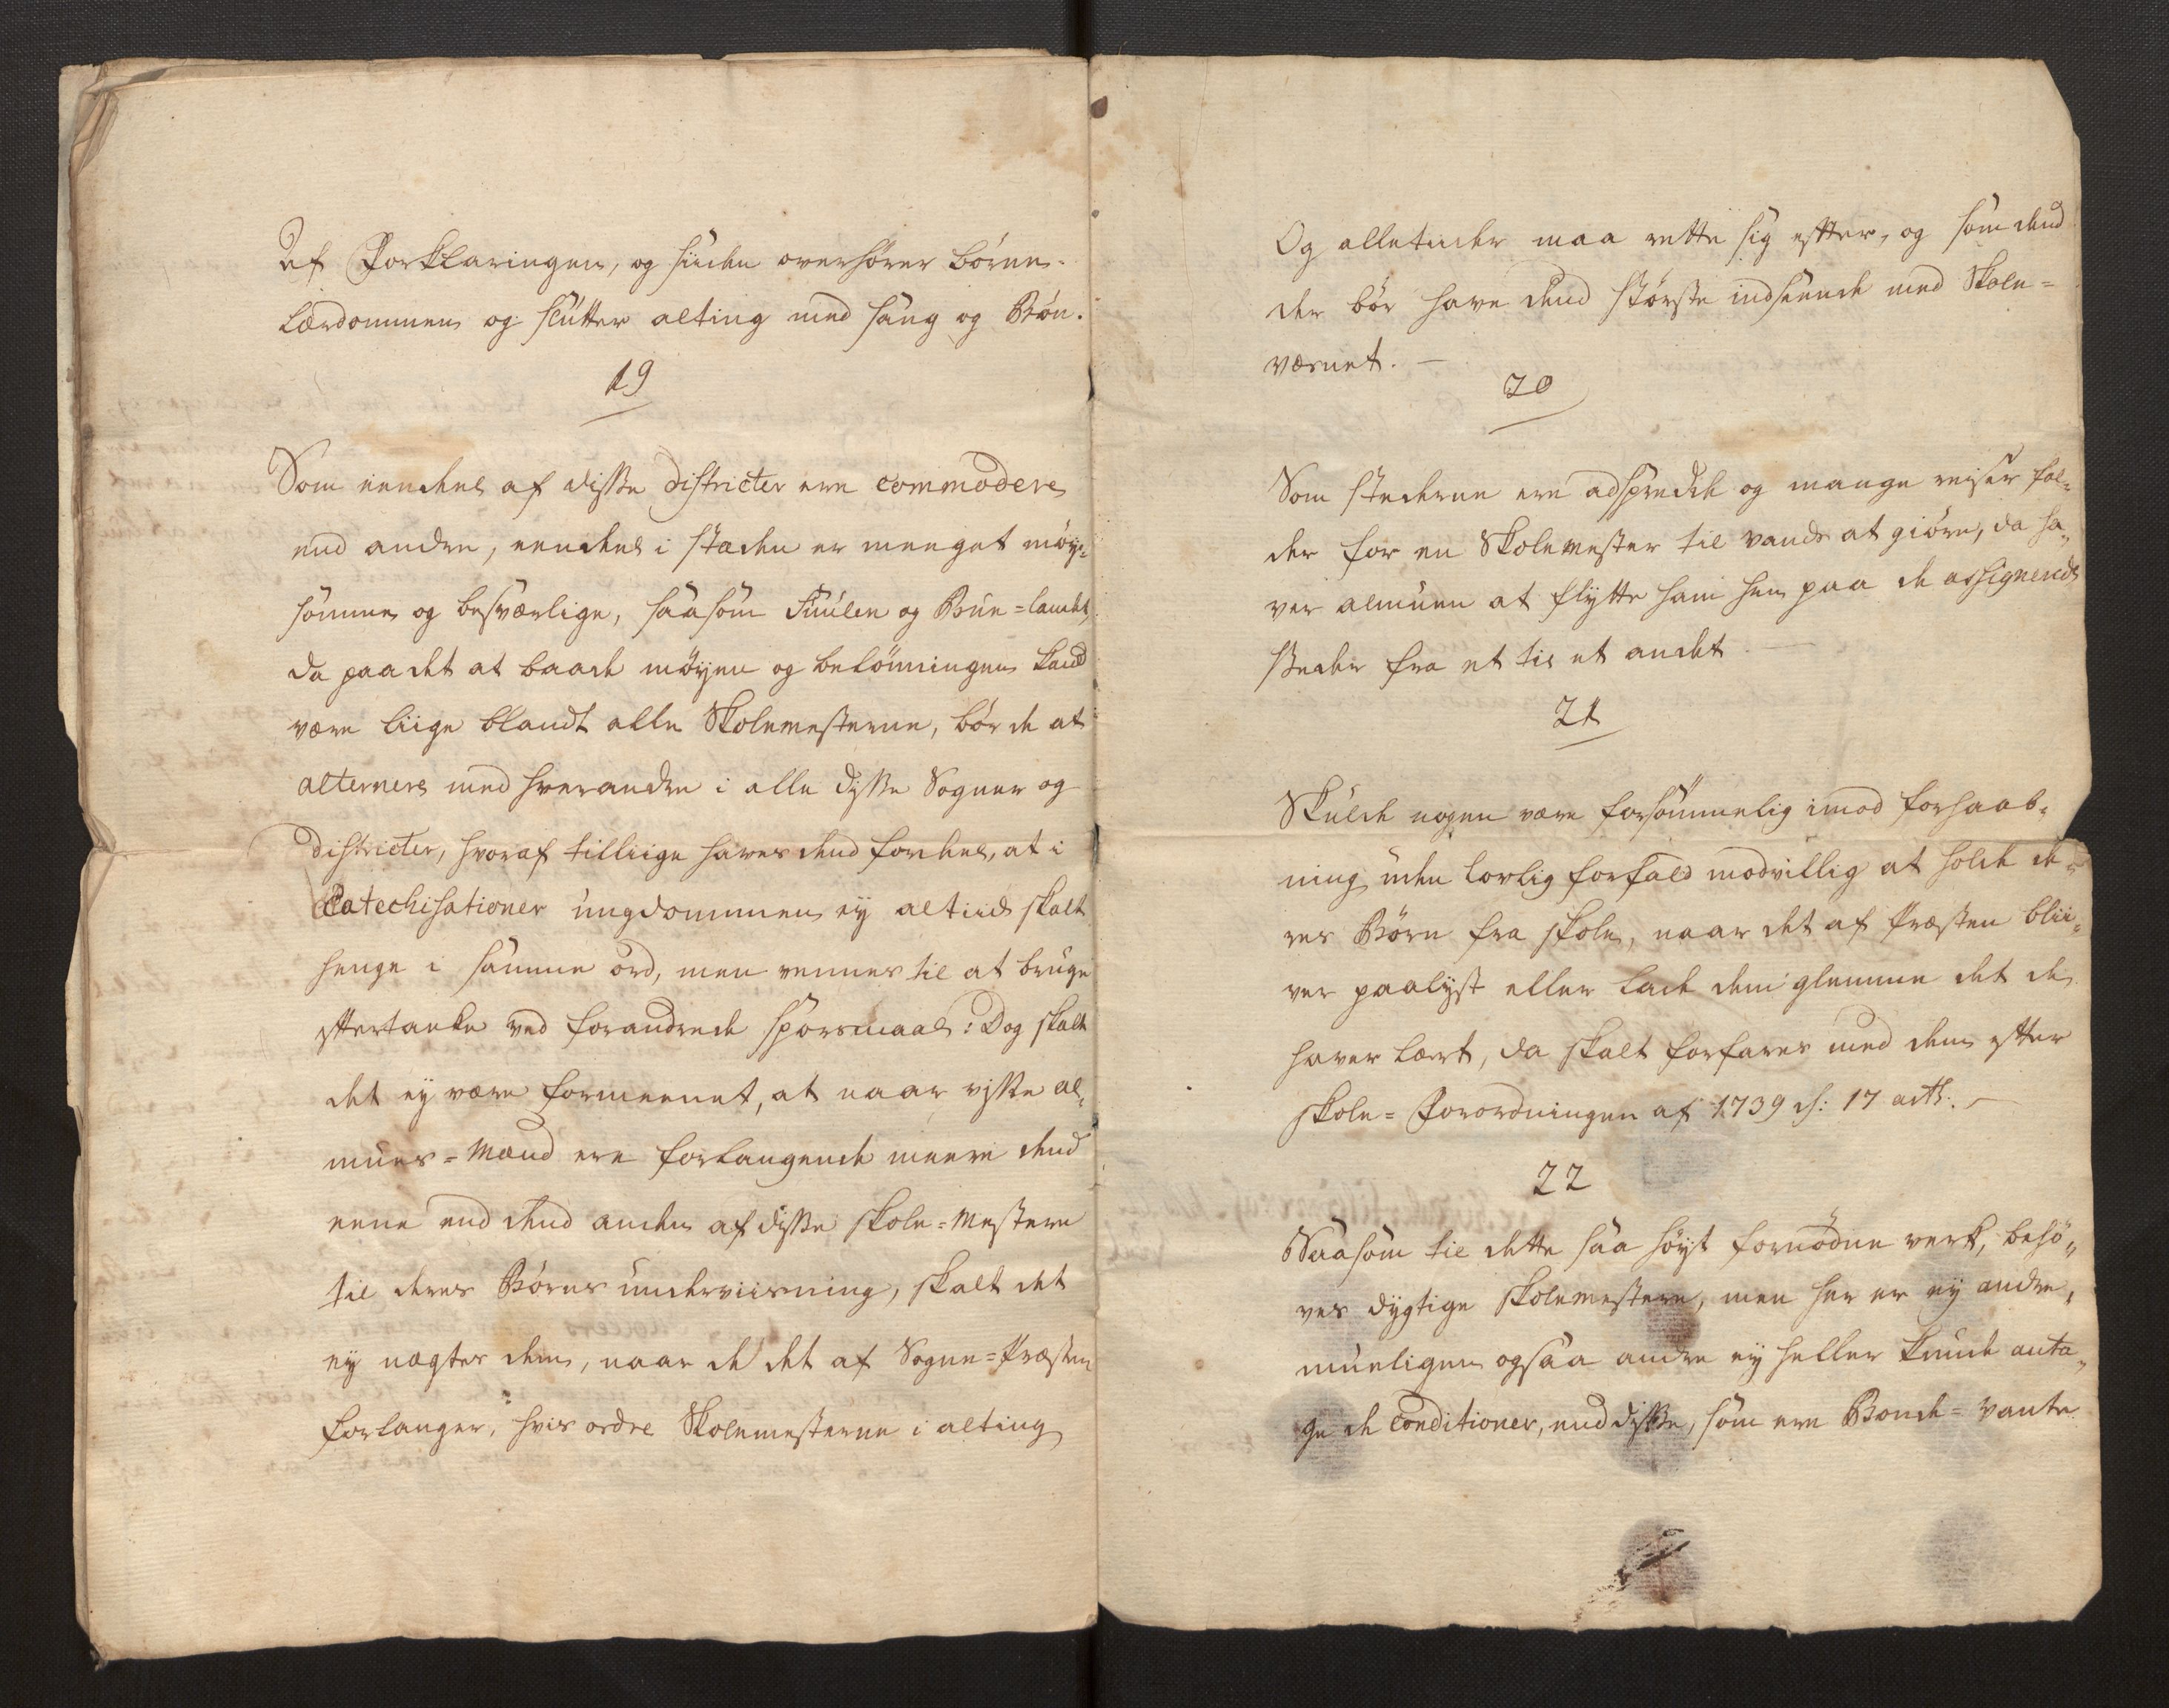 af Forklaringen, og siiden overhører børne-
lærdommen og slutter alting med sang og Bøn.
19
Som eendeel af disse districter ere commodere
end andre, eendeel i stæden er meeget møy-
sømme og besværlige, saasom Fuulen og Bue-landet,
da paa det at baade møyen og belønningen kand
være liige blandt alle Skolemesterne, bør de at
alternere med hverandre i alle disse Sogner og
districter, hvoraf tilliige haves dend fordeel, at i
Catechisationer ungdommen ey altiid skall
henge i samme ord, men vennes til at bruge
eftertanke ved forandrede spørsmaal: Dog skall
det ey være formeenet, at naar visse al-
mues-Mænd ere forlangende meere dend
eene end dend anden af disse skole-Mestere
til deres Børns underviisning, skall det
ey nægtes dem, naar de det af Sogne-Præsten
forlanger, hvis ordre Skolemesterne i alting
Og alletiider maa rette sig efter, og som dend
der bør have dend største indseende med Skole-
væsenet.
20
Som stederne ere adspredde og mange reiser fal-
der for en Skolemester til vands at giøre, da ha-
ver almuen at flytte ham hen paa de assignerede
steder fra et til et andet
21
Skulde nogen være forsømmelig imod forhaab-
ning uden lovlig forfald modvillig at holde de-
res Børn fra skole, naar det af Præsten blii-
ver paalyst eller lade dem glemme det de
haver lært, da skall forfares med dem efter
skole-Forordningen af 1739 d: 17 art:
22
Saasom til dette saa høyt fornødne verk, behø-
ves dygtige skolemestere, men her er ey andre,
mueligen ogsaa andre ey heller kunde anta-
ge de Conditioner, end disse, som ere Bonde-vante